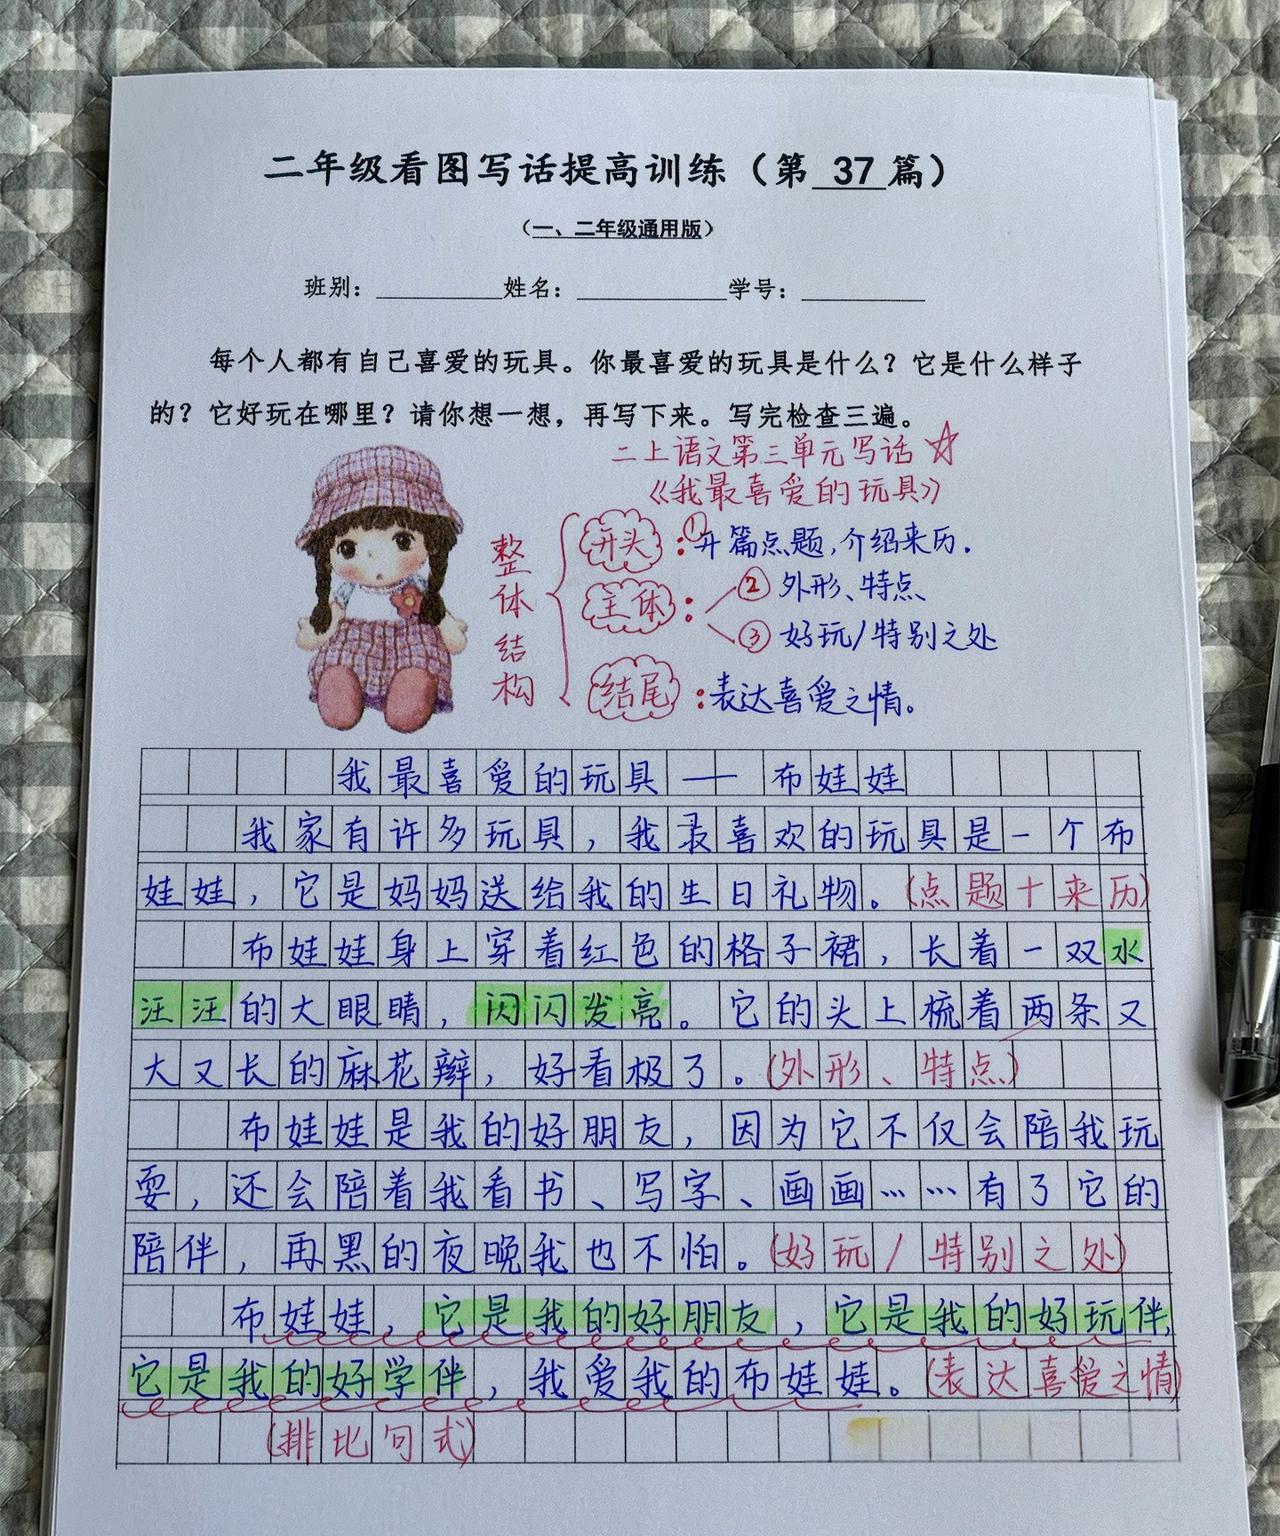 二年级看图写话提高训练（第 37 篇）
（一、二年级通用版）
班别：__________姓名：____________学号：__________
每个人都有自己喜爱的玩具。你最喜爱的玩具是什么？它是什么样子
的？它好玩在哪里？请你想一想，再写下来。写完检查三遍。
二上语文第三单元写话☆
《我最喜爱的玩具》
整体结构
开头：①开篇点题，介绍来历.
主体：②外形、特点
③好玩/特别之处
结尾：表达喜爱之情。
我最喜爱的玩具——布娃娃
我家有许多玩具，我最喜欢的玩具是一个布
娃娃，它是妈妈送给我的生日礼物。（点题十来历）
布娃娃身上穿着红色的格子裙，长着一双水
汪汪的大眼睛，闪闪发亮。它的头上梳着两条又
大又长的麻花辫，好看极了。（外形、特点）
布娃娃是我的好朋友，因为它不仅会陪我玩
耍，还会陪着我看书、写字、画画……有了它的
陪伴，再黑的夜晚我也不怕。（好玩/特别之处）
布娃娃，它是我的好朋友，它是我的好玩伴，
它是我的好学伴，我爱我的布娃娃。（表达喜爱之情）
（排比句式）